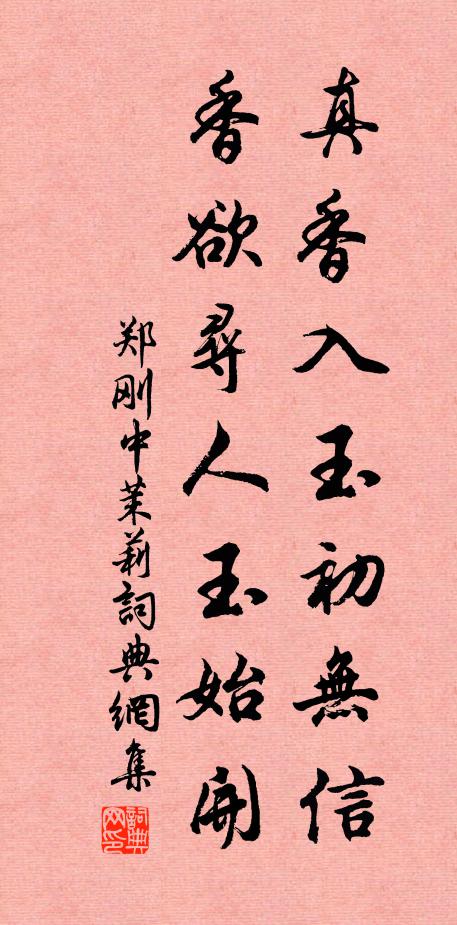 真香入玉初無信
香欲尋人玉始開
郑刚中茉莉詞典網集
詞典网印